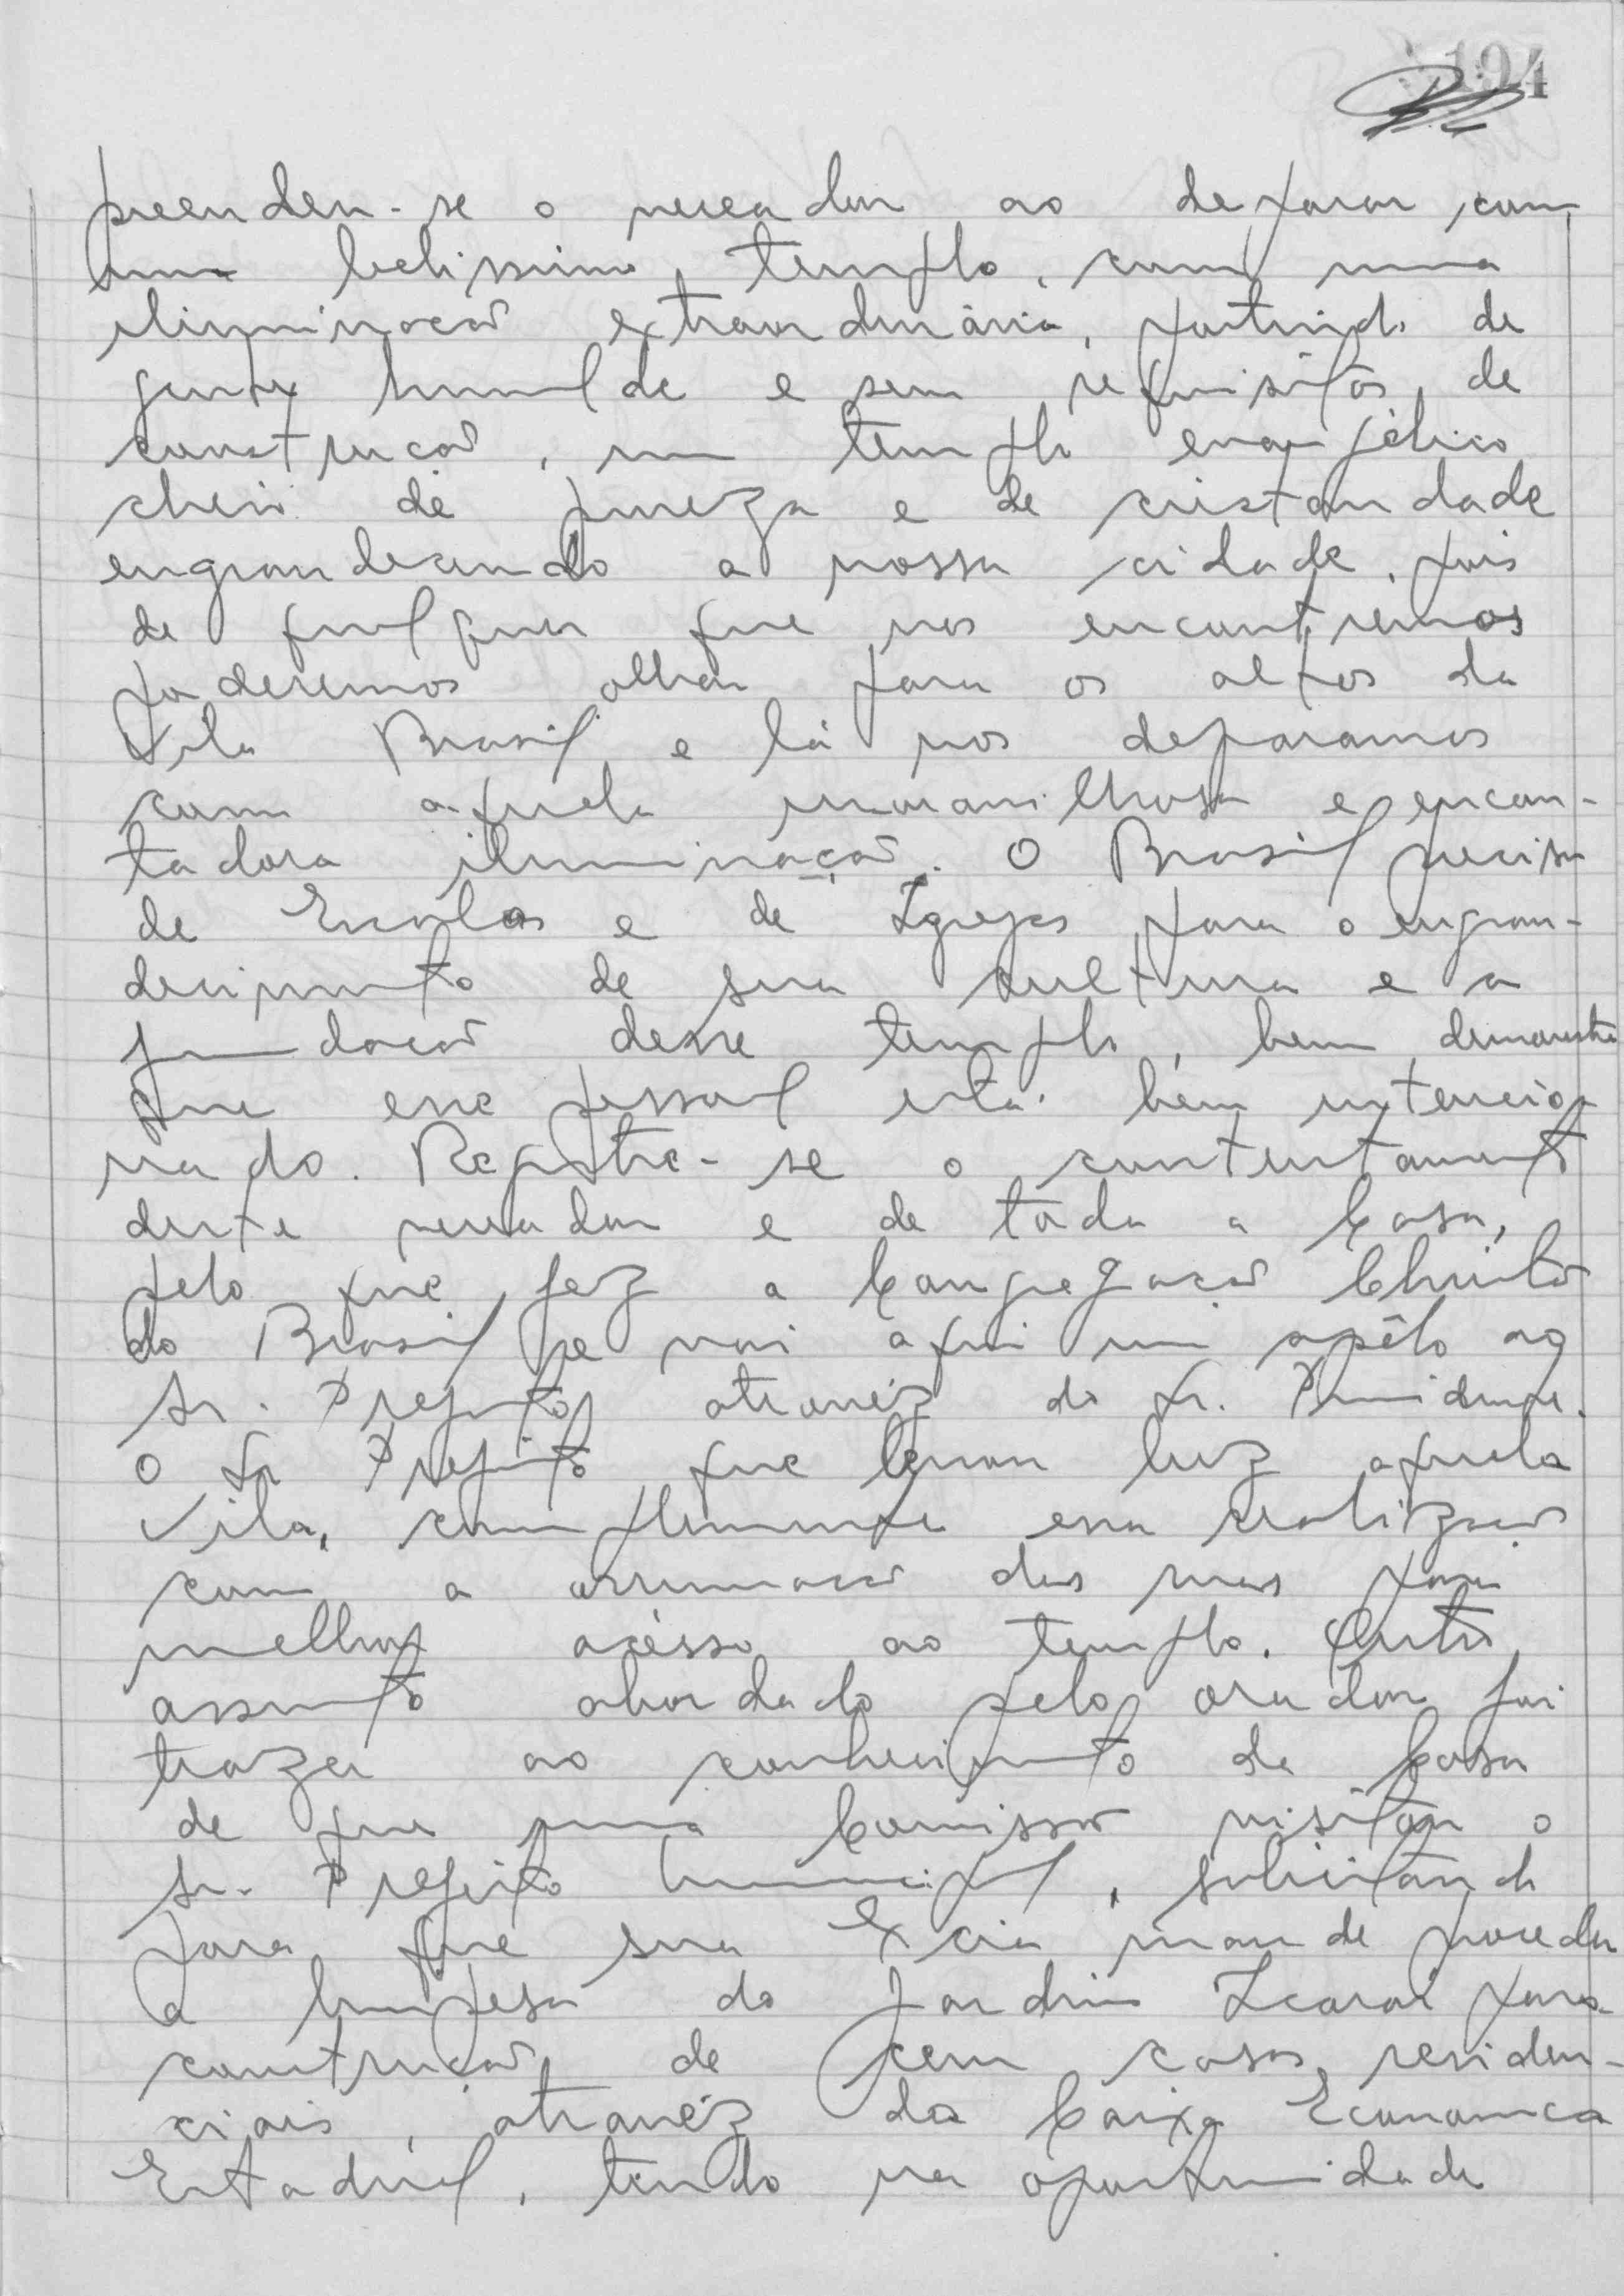 194
preendeu-se o vereador ao deparar com
um belissimo templo, com uma
iluminação extraordinária, partindo de
gente humilde e sem requisitos de
construção, um templo evangélico
cheio de pureza e de cristandade
engrandecendo a nossa cidade, pois
de qualquer que nos encontremos
poderemos olhar para os altos da
Vila Brasil e lá nos deparamos
com aquela maravilhosa e encan-
tadora iluminação. O Brasil precisa
de Escolas e de Igrejas para o engran-
decimento de sua cultura e a
fundação desse templo, bem demonstra
que esse pessoal está bem intencio-
nado. Registre-se o contentamento
deste vereador e de toda a Casa,
pelo que fez a Congregação Christã
do Brasil e vai aqui um apêlo ao
Sr. Prefeito atravéz do Sr. Presidente.
O Sr Prefeito que levou luz aquela
Vila, complemente essa realização
com a arrumação das ruas para
melhor acésso ao templo. Outro
assunto abordado pelo orador foi
trazer ao conhecimento da Casa
de que uma Comissão visitou o
Sr. Prefeito Municipal, solicitando
para que sua Excia mande proceder
a limpesa do Jardim Icaraí para
construção de cem casas residen-
ciais, atravéz da Caixa Economica
Estadual, tendo na oportunidade